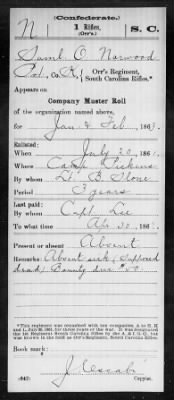 (Confederate.)
N 1 Rifles, S. C.
(Orr's.)
Saml O. Norwood
Pvt, Co. K, Orr's Regiment,
South Carolina Rifles.*
Appears on
Company Muster Roll
of the organization named above,
for Jan & Feb, 186
Enlisted:
When July 20, 186
Where Camp Pickens
By whom Lt. B. Slone
Period 3 years
Last paid:
By whom Capt. Lee
To what time Apr 30, 186
Present or absent Absent
Remarks: Absent sick (supposed
dead) Bounty due $50.
*This regiment was organized with ten companies, A to
and L, July 20, 1861, for three years of the war. It was designated
the 1st Regiment South Carolina Rifles by the A. & I. G. O., but
was known in the field as Orr's Regiment, South Carolina Rifles.
Book mark:
(642)
Copyist.